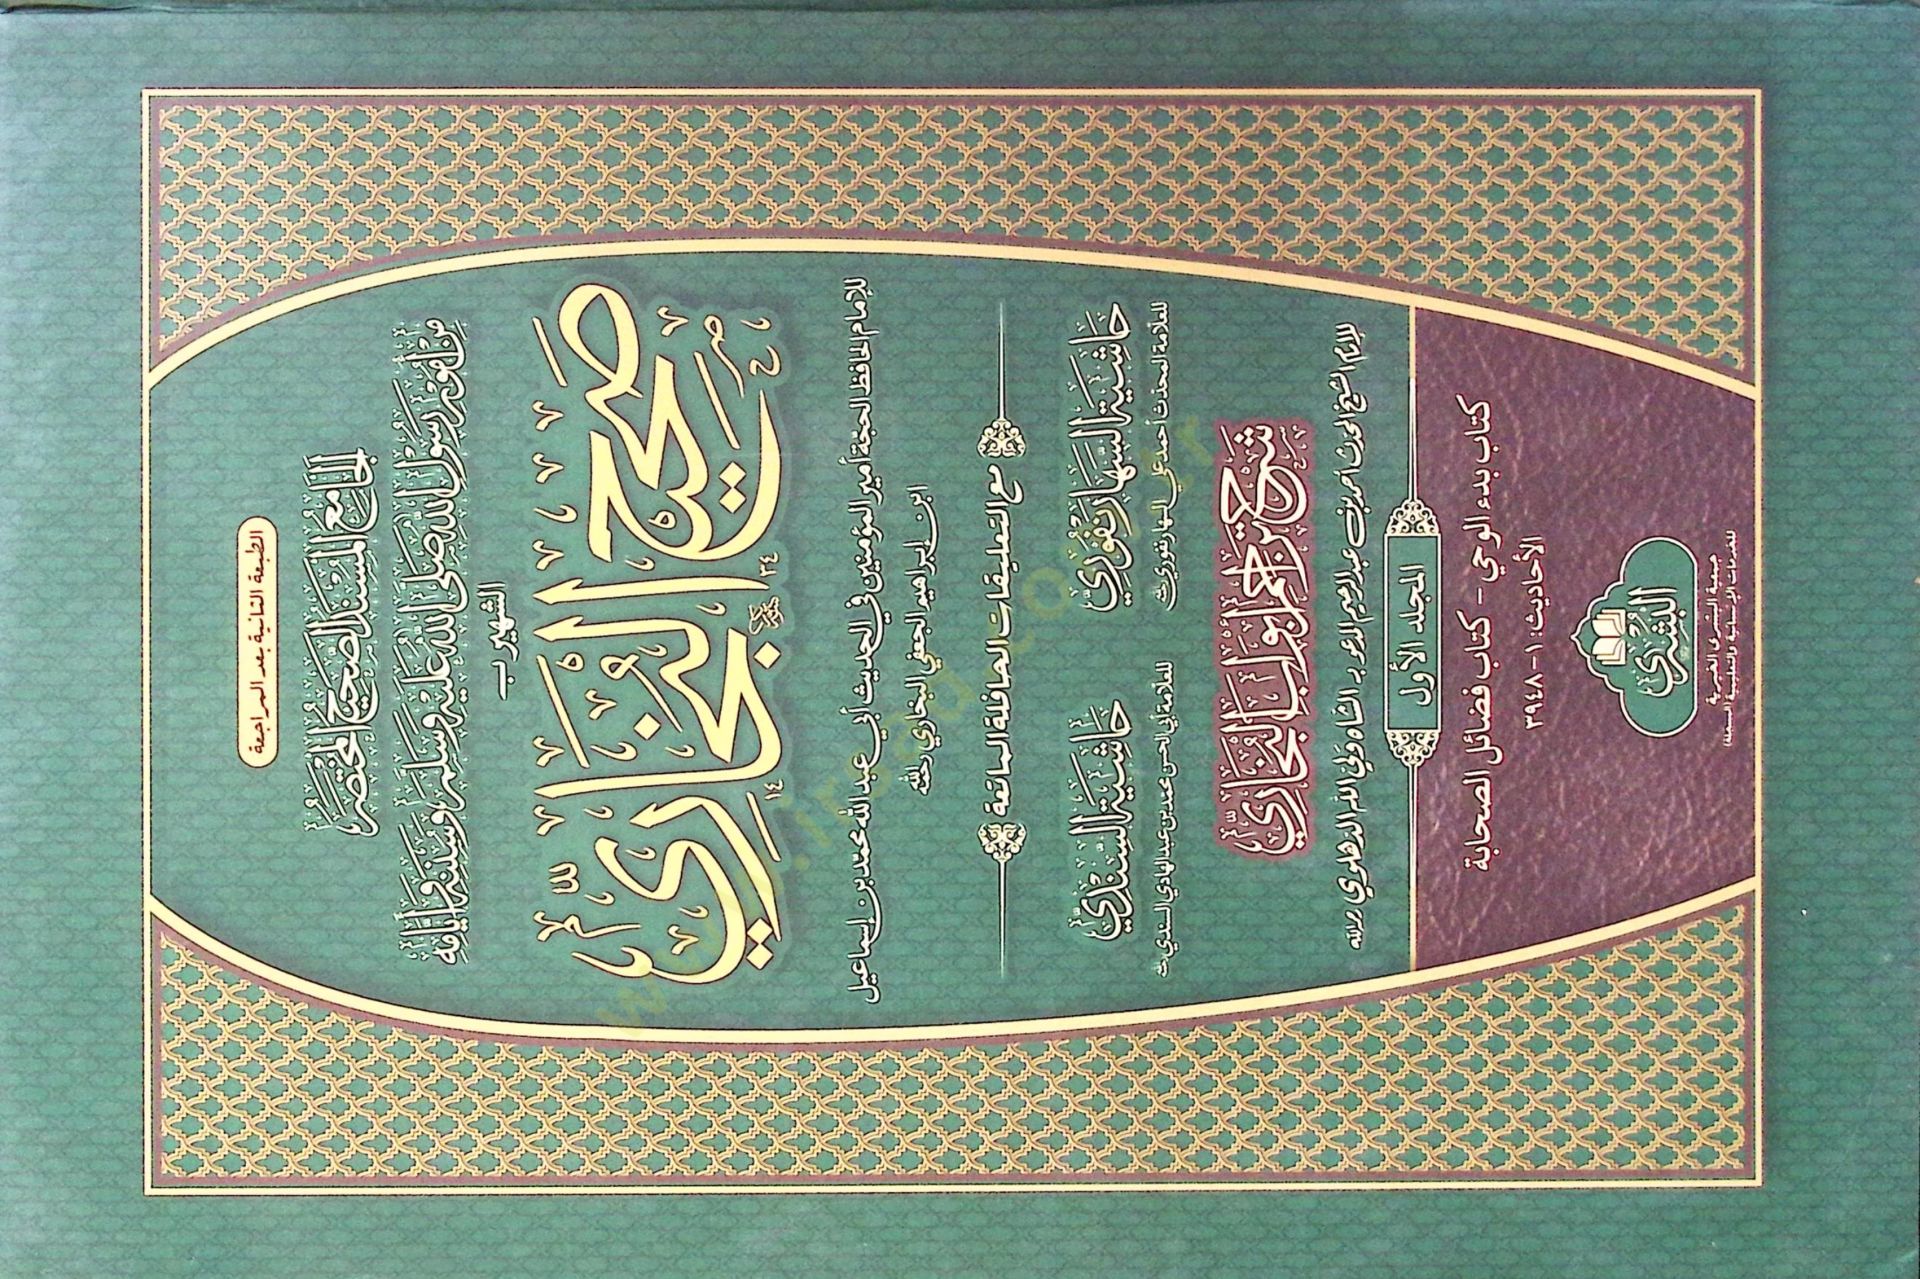 الطبعة الثانية بعد المراجعة
الجَامِعُ المُسْنَدُ الصَّحِيحُ المُخْتَصَرُ
مِنْ أُمُورِ رَسُولِ اللّٰهِ صَلَّى اللّٰهُ عَلَيْهِ وَسَلَّمَ وَسُنَنِهِ وَأَيَّامِهِ
الشهير بـ
صَحِيحُ البُخَارِيِّ
للإمام الحافظ الحجة أمير المؤمنين في الحديث أبي عبد الله محمد بن إسماعيل
ابن إبراهيم الجعفي البخاري رحمه الله
مع التعليقات الحافلة الماتعة
حَاشِيَةُ السَّهَارَنْفُورِيِّ
للعلامة المحدث أحمد علي السهارنفوري
حَاشِيَةُ السِّنْدِيِّ
للعلامة أبي الحسن محمد بن عبد الهادي السندي
شَرْحُ تَرَاجِمِ أَبْوَابِ البُخَارِيِّ
للإمام الشيخ المحدث أحمد بن عبد الرحيم المدعو بـ الشاه ولي الله الدهلوي
المجلد الأول
كتاب بدء الوحي - كتاب فضائل الصحابة
الأحاديث: ١-٣٩٤٨
البُشْرَى
جمعية البشرى الخيرية
للخدمات الإنسانية والتعليمية (المسجلة)